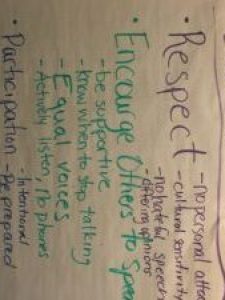 • Respect - no personal atta
- cultural sensitivit
- no hateful speech
- differing opinions
• Encourge Others to Spea
- be supportive
- know when to stop talking
- Equal voices
- Actively listen, no phones
• Participation - Intentional
- Be prepared